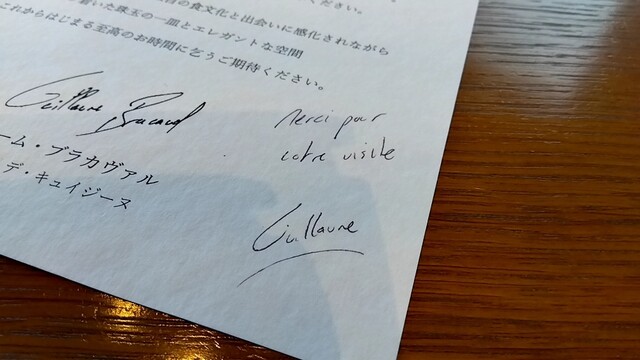 ださい。
の食文化と出会いに感化されながら
着いた珠玉の一皿とエレガントな空間
これからはじまる至高のお時間に乞うご期待ください。
Guillaume Bracaval
Merci pour
votre visite
ーム・ブラカヴァル
デ・キュイジーヌ
Guillaume